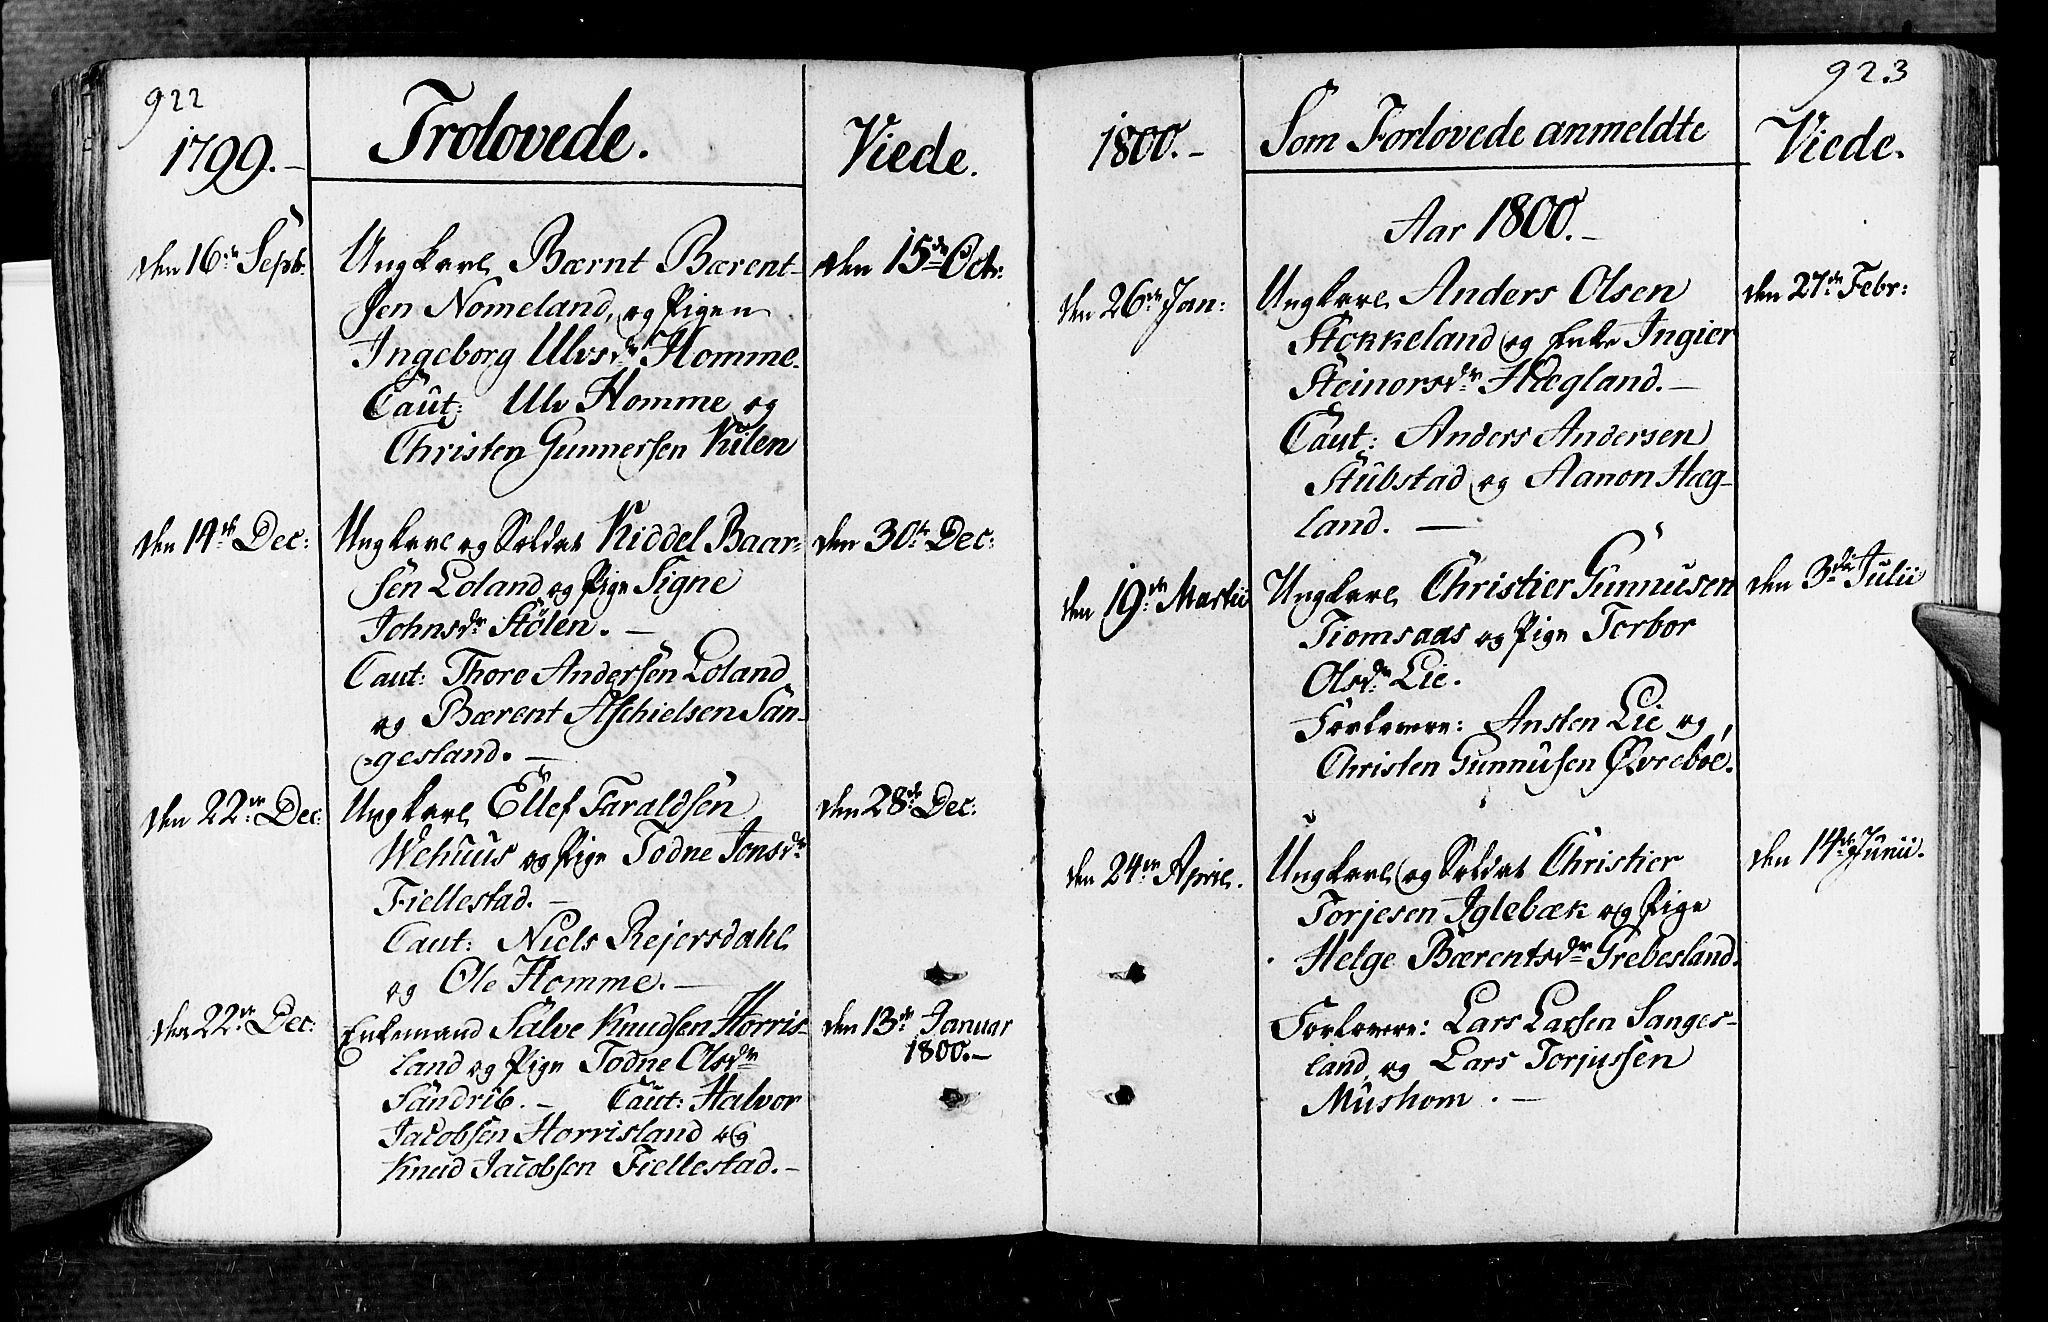 922
1799.- Trolovede. Viede.
den 16de Septb. Ungkarl Bærnt Bærent- den 15de Octr:
sen Nomeland, og Pigen
Ingeborg Ulvsdr Homme.
Caut: Ulv Homme og
Christen Gunnersen Kilen
den 14de Dec: Ungkarl og Soldat Kiddel Baar- den 30te Dec:
sen Loland og Pige Signe
Johnsdr Stölen. -
Caut: Thore Andersen Loland
og Bærent Aschielsen San-
gesland. -
den 22de Dec: Ungkarl Ellef Taraldsen den 28de Dec:
Wehuus og Pige Todne Jonsdr
Fiellestad. -
Caut: Niels Rejersdahl
og Ole Homme. -
den 22de Dec: Enkemand Salve Knudsen Horris- den 13de Januar
land og Pige Todne Olsdr 1800.-
Sandrib. - Caut: Halvor
Jacobsen Horrisland og
Knud Jacobsen Fiellestad. -
923
1800. - Som Forlovede anmeldte Viede.
Aar 1800. -
den 26de Jan: Ungkarl Anders Olsen den 27de Febr:
Stokkeland og Enke Ingier
Steinorsdr Hægland. -
Caut: Anders Andersen
Stubstad og Aanon Hæg-
land. -
den 19de Martii Ungkarl Christier Gunnusen den 3die Julii
Tiomsaas og Pige Torbor
Olsdr Lie.
Forlovere: Ansten Lie og
Christen Gunnusen Øvreboe.
den 24de April. Ungkarl og Soldat Christier den 14de Junii.
Torjesen Iglebæk og Pige
Helge Bærentsdr Grebesland.
Forlovere: Lars Larsen Sanges-
land og Lars Torjussen
Mushom. -